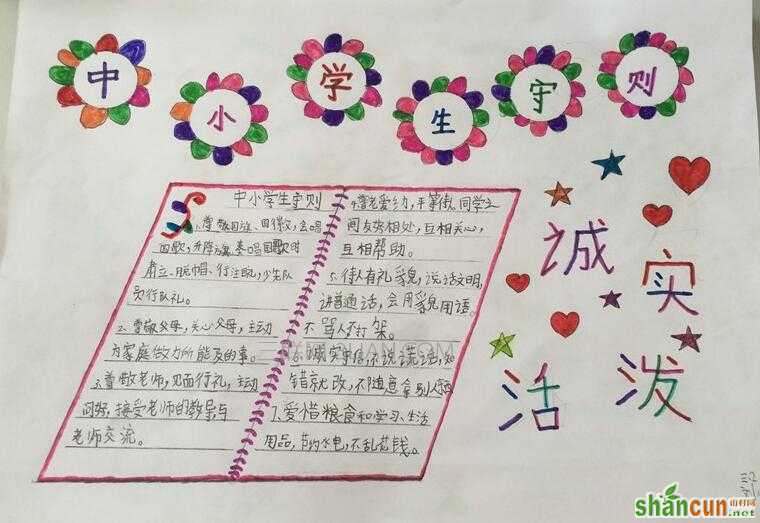 中小学生守则
诚实
活泼
中小学生守则
1.尊敬国旗、国徽,会唱
国歌,升降旗、奏唱国歌时
肃立、脱帽、行注目礼,少先队
员行队礼。
2.尊敬父母,关心父母,主动
为家庭做力所能及的事。
3.尊敬老师,见面行礼,主动
问好,接受老师的教导与
老师交流。
4.尊老爱幼,平等待同学之
间友好相处,互相关心,
互相帮助。
5.待人有礼貌,说话文明,
讲普通话,会用礼貌用语。
不骂人不打架。
6.诚实守信,不说谎话,知
错就改,不随意拿别人
7.爱惜粮食和学习、生活
用品,节约水电,不乱花钱。
三2
shancun
山村网
.net